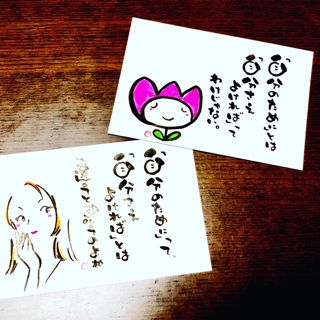 「自分のために」とは
「自分さえ
よければ」って
わけじゃない。
「自分のために」って、
「自分さえ
よければ」とは